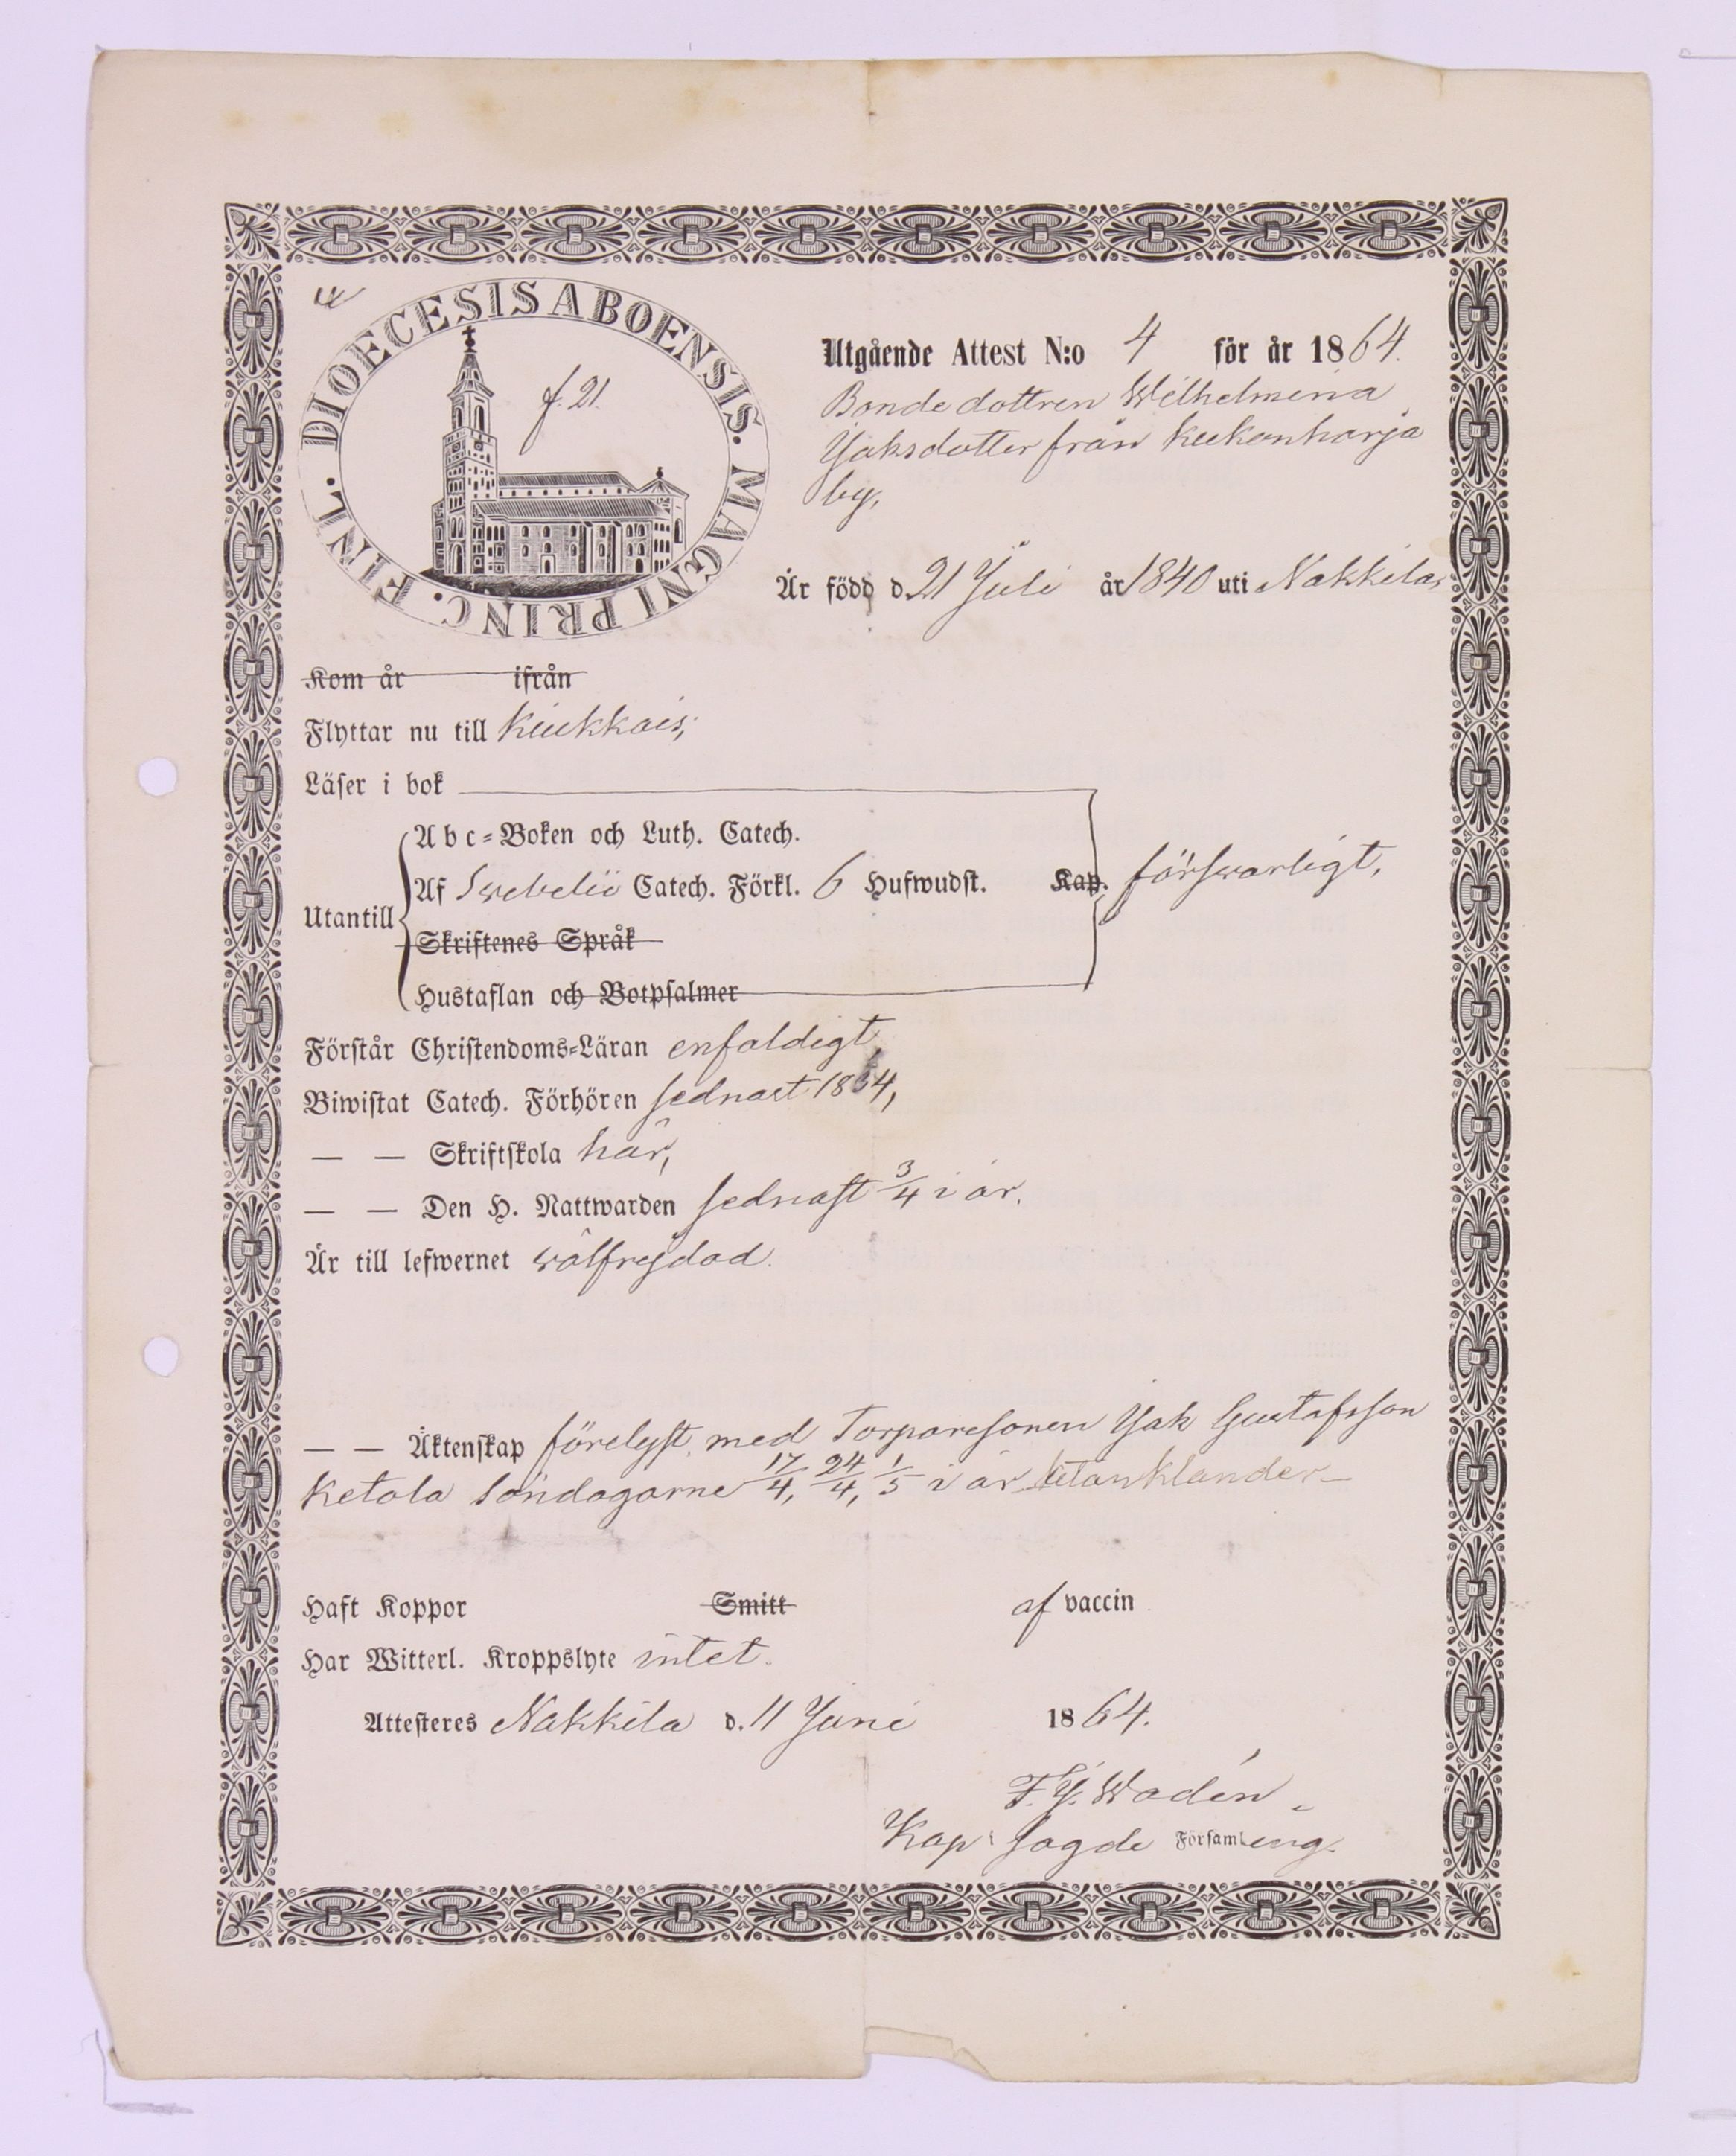 DIOECESIS ABOENSIS. MAGNI PRINC. FINL.
f. 21.
Utgående Attest N:o 4 för år 1864.
Bondedottren Wilhelmina
Jaksdotter från Kukonharja
by,
Är född d 21 Juli år 1840 uti Nakkila,
Kom år ifrån
Flyttar nu till Kiukkais,
Läser i bok
Abc-Boken och Luth. Catech.
Af Svebelii Catech. Förkl. 6 Hufwudst. Kap. försvarligt,
Utantill
Skriftenes Språk
Hustaflan och Botpsalmer
Förstår Christendoms-Läran enfaldigt,
Biwistat Catech. Förhören sednast 1864,
— — Skriftskola här,
— — Den H. Nattwarden sednast 3/4 i år.
Är till lefwernet välfrejdad.
— — Äktenskap förelyst med Torparesonen Jak Gustafsson
Ketola Söndagarne 17/4, 24/4, 1/5 i år utan klander
Haft Koppor Smitt af vaccin
Har Witterl. Kroppslyte intet.
Attesteres Nakkila d. 11 Juni 1864.
F. J. Wadén
Kap i sagde Församleng.